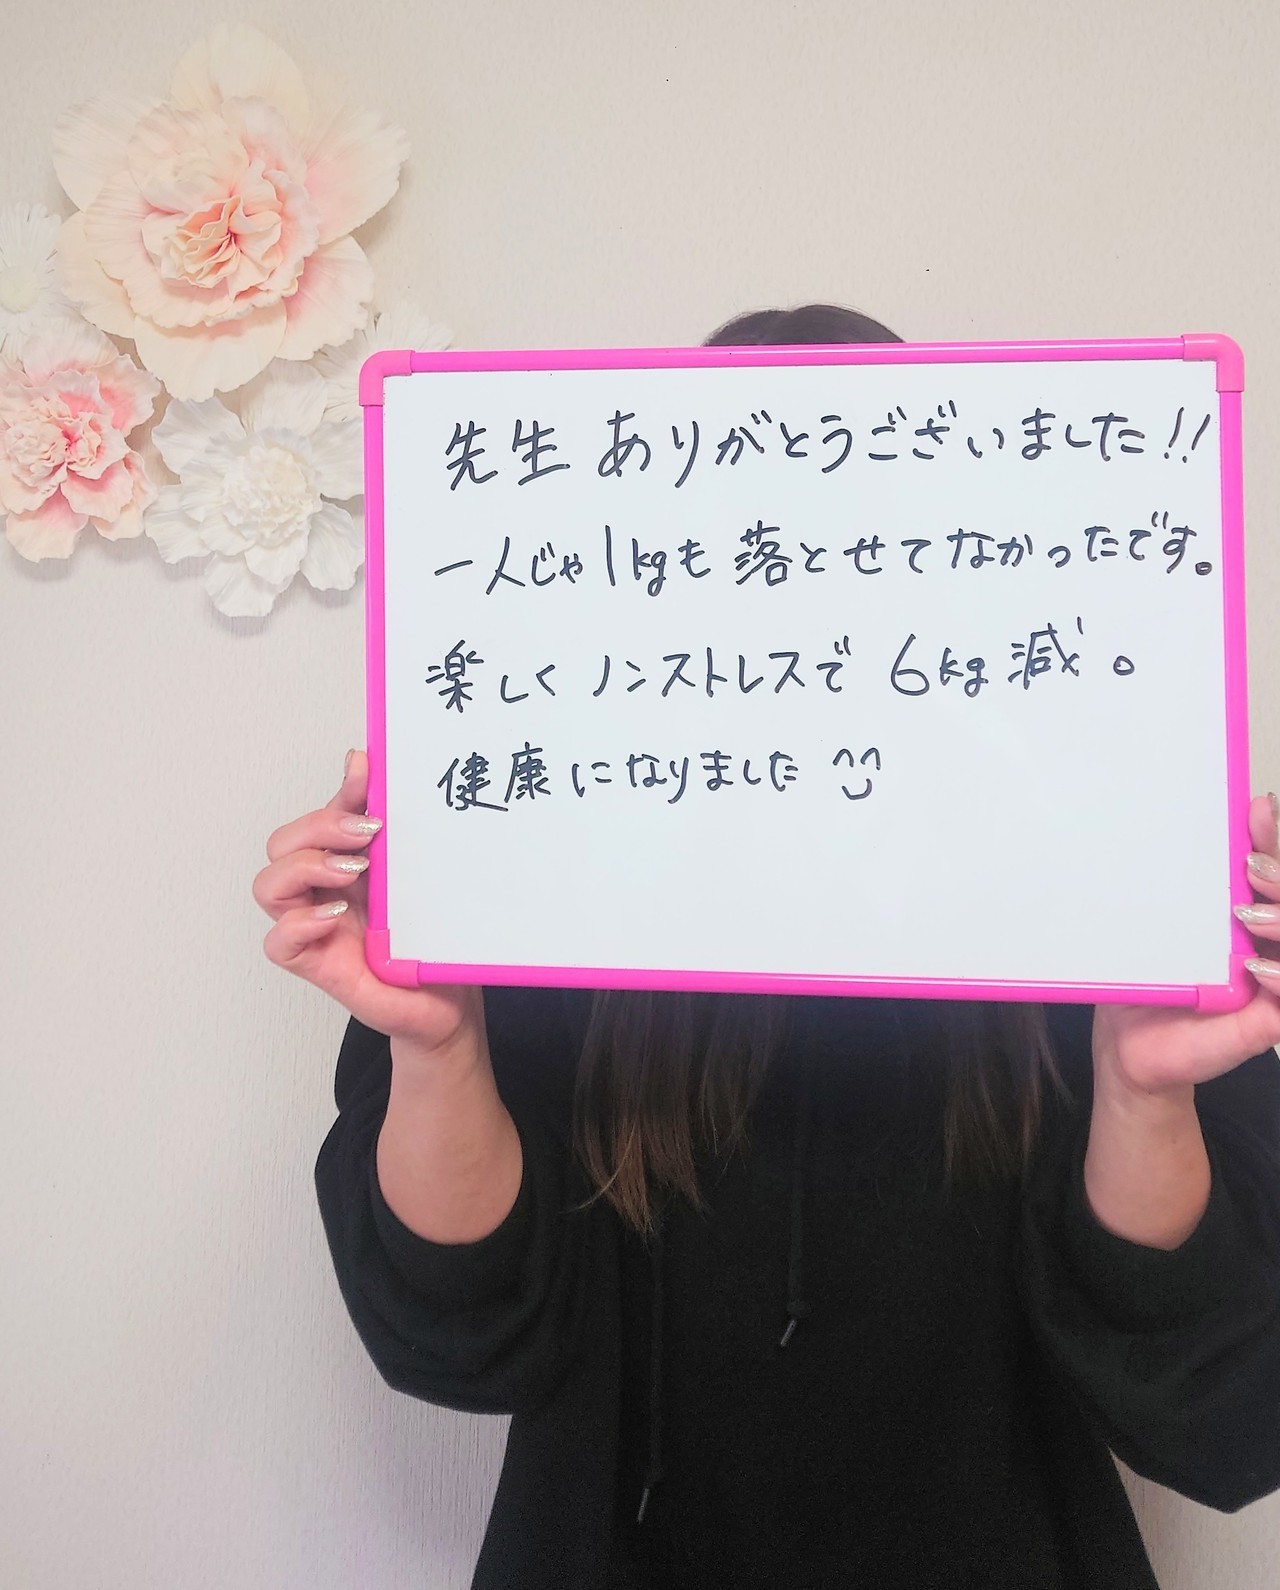 先生 ありがとうございました!!
一人じゃ1kgも落とせてなかったです。
楽しくノンストレスで 6kg減。
健康になりました ^^